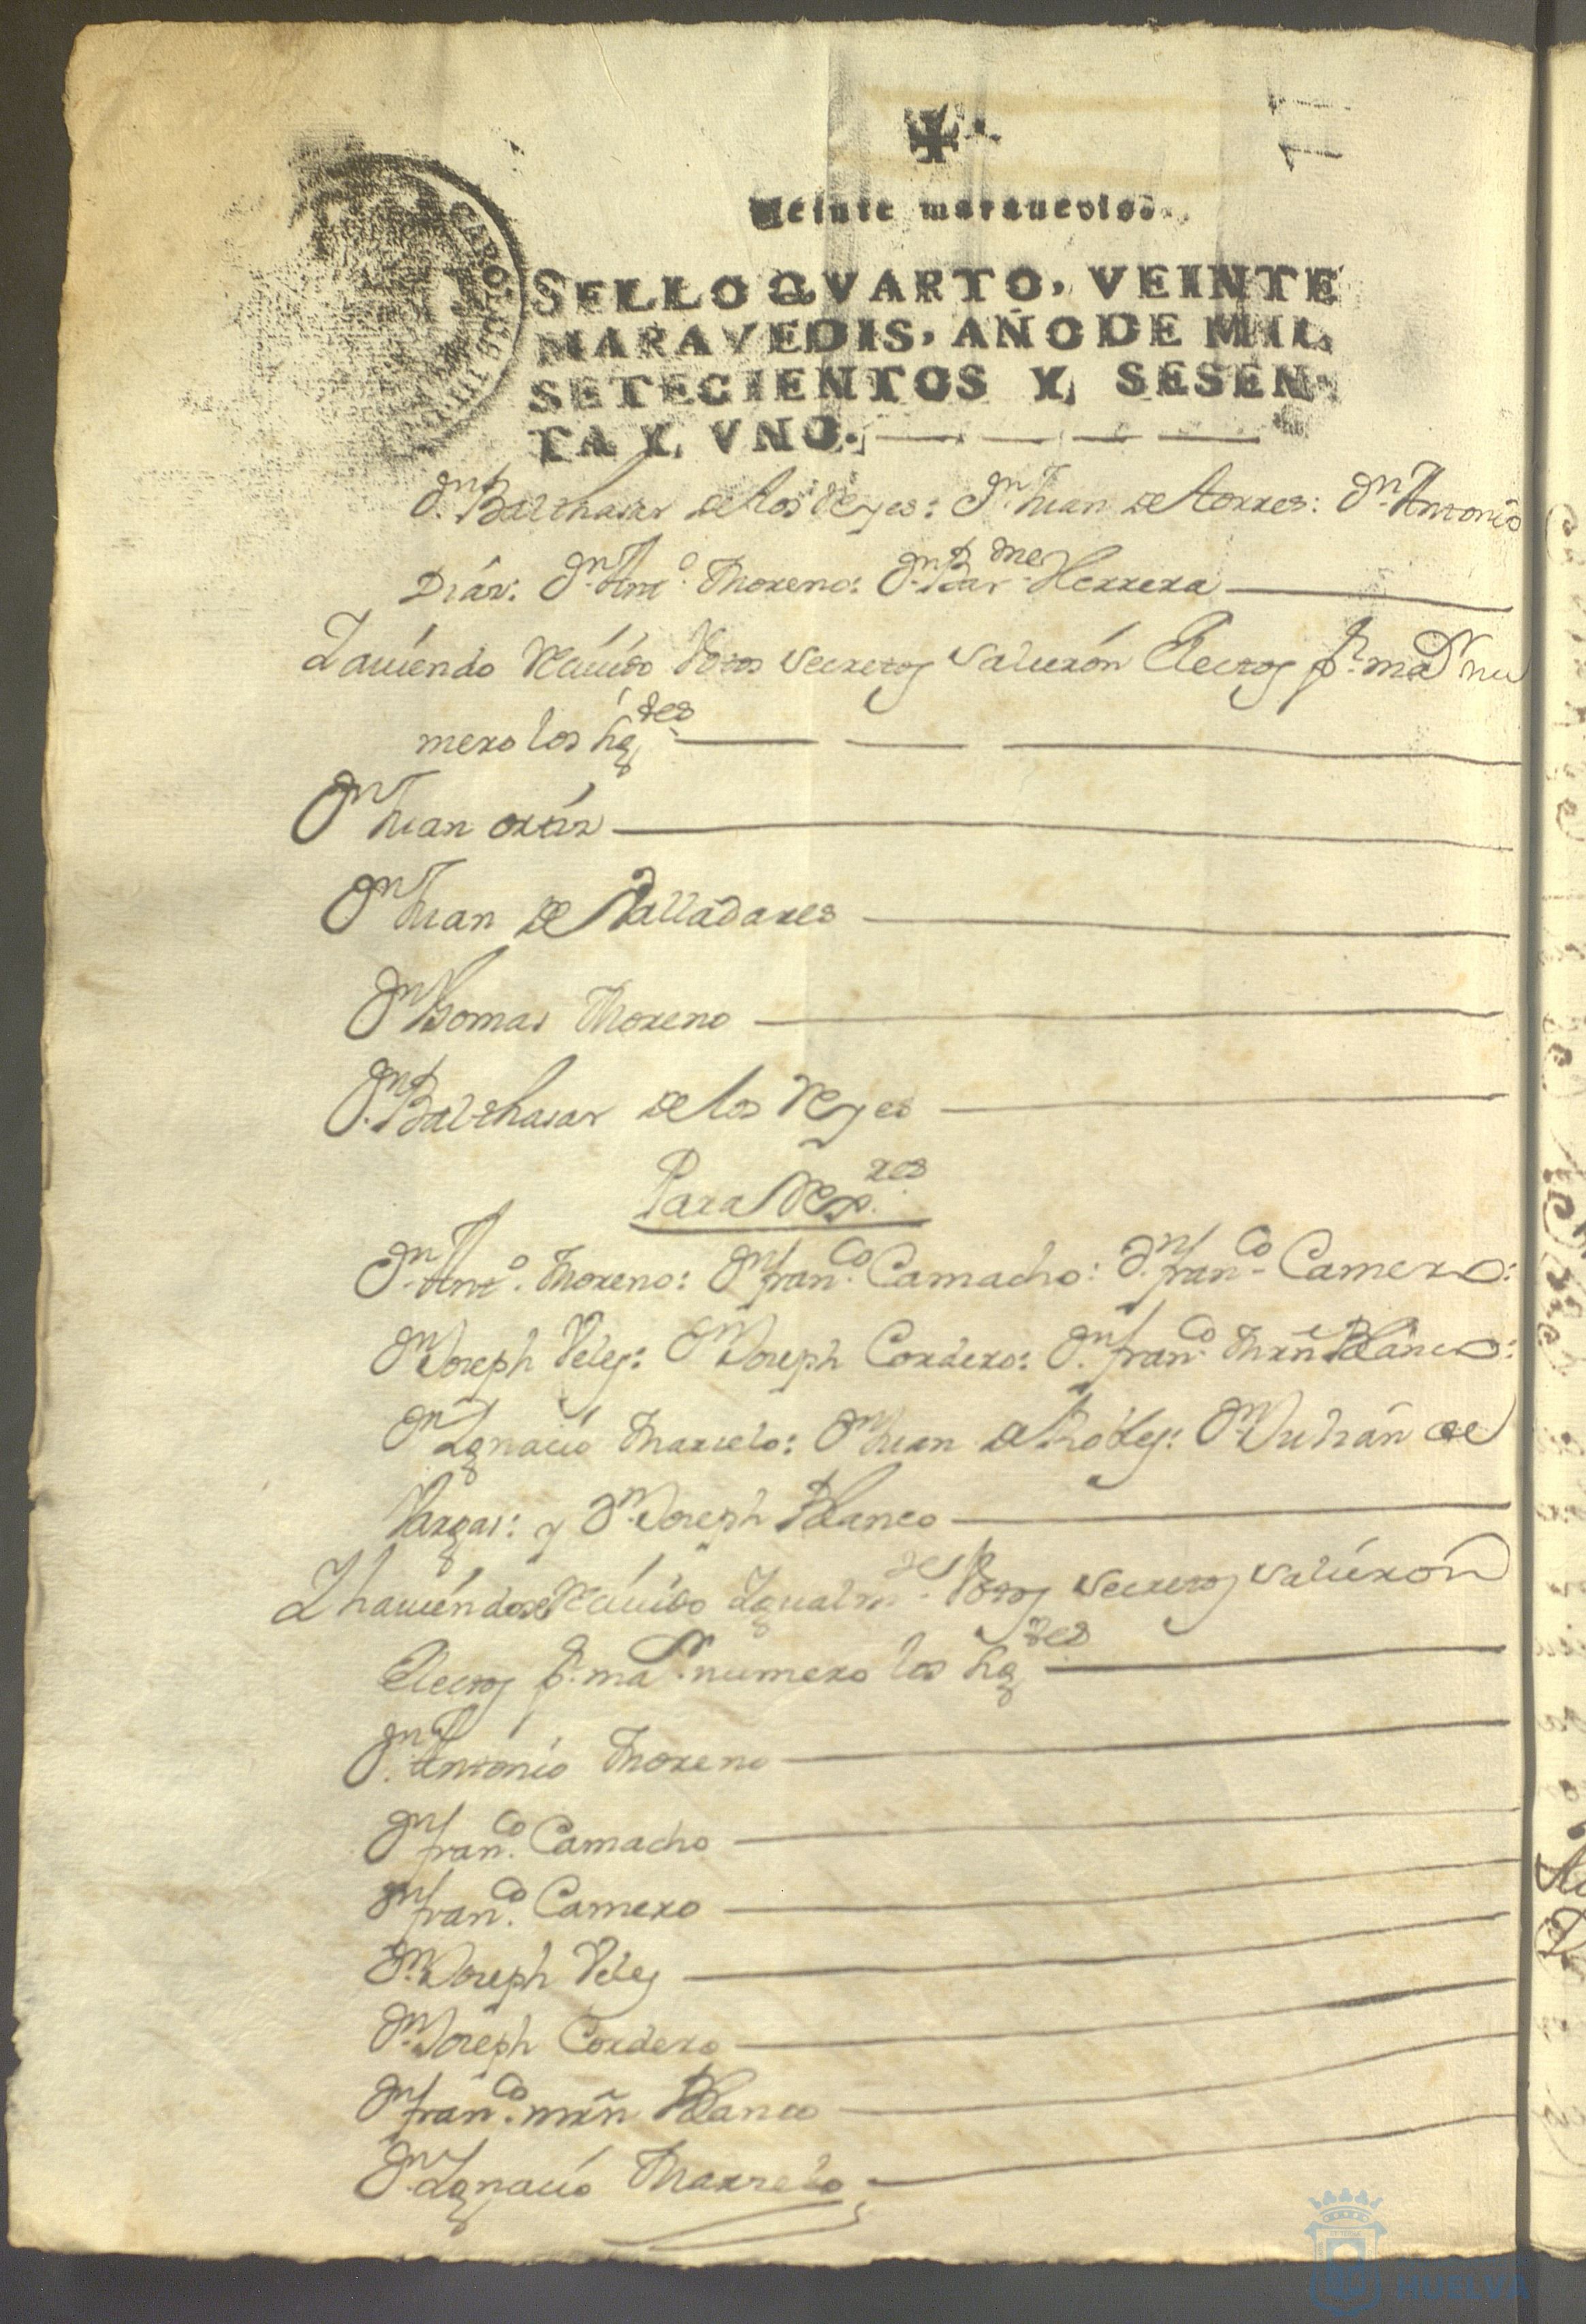 11
Veinte marauedis.
SELLO QVARTO, VEINTE
MARAVEDIS, AÑO DE MIL
SETECIENTOS Y SESEN-
TA Y VNO.
Dn. Balthasar de los Reyes: Dn. Juan de torres: Dn. Antonio
Diáz: Dn. Anto. Moreno: Dn. Barme. Herrera
Y auiendo Reciuido Votos Secretos Salieron Electos pr. mar. nu
mero los sigtes.
Dn Juan
Dn Juan de Valladares
Dn Thomas Moreno
Dn. Balthasar de los Reyes
Para Rexres.
Dn. Anto. Moreno: Dn franco. Camacho: Dn. franco. Camero:
Dn Joseph Velez: Dn Joseph Cordero: Dn. franco. Mrñ Blanco:
Dn Ygnacio Marcelo: Dn Juan de Robles: Dn Julián de
Vargas: y Dn. Joseph Blanco
Y hauiendose Reciuido Ygualmte. Votos Secretos Salieron
Electos pr. mar. numero los sigtes.
Dn. Antonio Moreno
Dn franco. Camacho
Dn franco. Camero
Dn. Joseph Velez
Dn. Joseph Cordero
Dn franco. mrñ Blanco
Dn. Ygnacio Marzelo
HUELVA